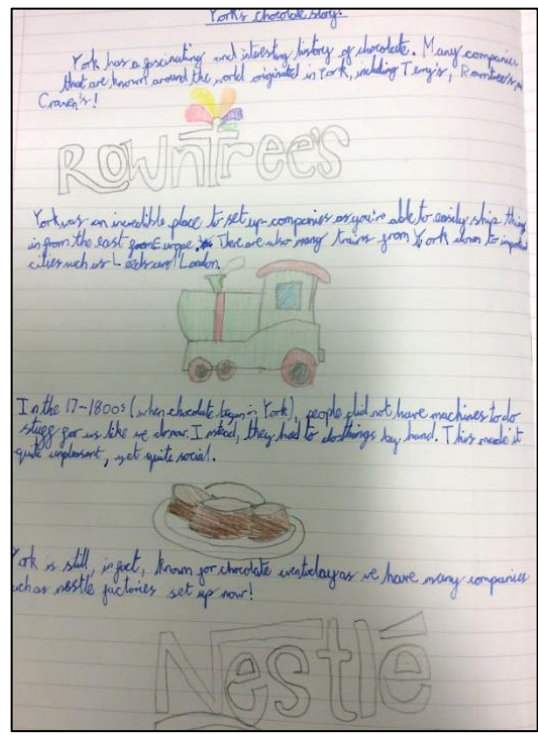 York's chocolate story.
York has a fascinating and interesting history of chocolate. Many companies
that are known around the world originated in York, including Terry's, Rowntree's,
Craven's!
Rowntree's
York was an incredible place to set up companies as you're able to easily ship things
in from the east from Europe. There are also many trains from York down to
cities such as Leeds and London.
In the 17-1800s (when chocolate began in York), people did not have machines to do
stuff for us like we do now. Instead, they had to do things by hand. This made it
quite unpleasant, yet quite social.
York is still, in fact, known for chocolate even today as we have many companies
such as nestle factories set up now!
Nestlé